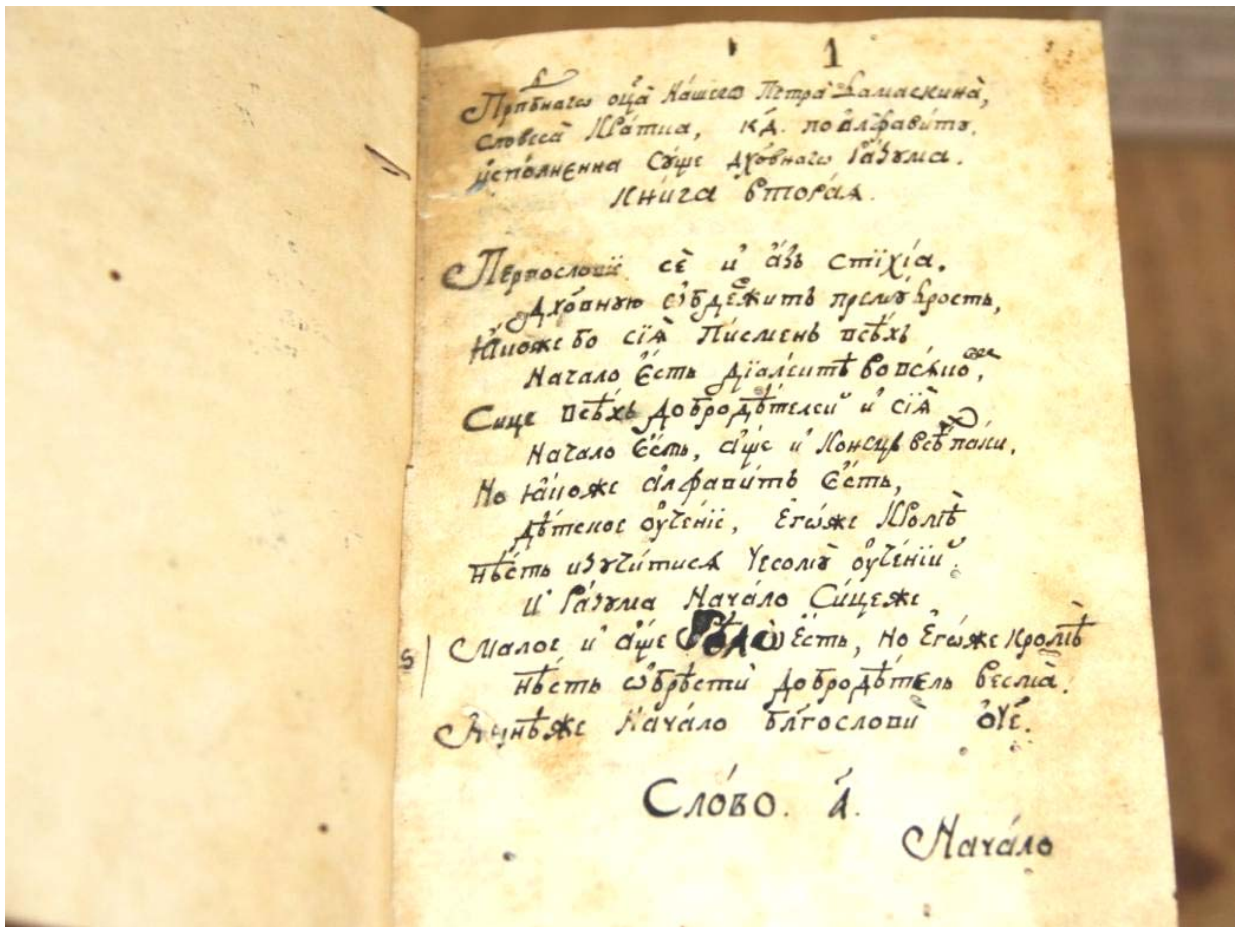 1
Прпбнагѡ ѻц҃а̀ На́шегѡ Петра̀ Дамаскина̀,
словеса̀ Кра̑тка, к҃д. по а҆лфави́тꙋ.
и҆спо́лненна Сꙋ́ще дх҃о́внагѡ Ра́зꙋма.
Кни́га вто́рая.
Первословїѐ сѐ и҆ а҆́зъ стїхі́а.
Дх҃о́внꙋю ѡ҆бде́житъ премꙋ́дрость,
Ꙗ҆́коже бо сїѧ̀ Пи́сменъ всѣ́хъ
Нача́ло Є҆́сть дїале́ктѣ во всѧ́ко,
Си́це всѣ́хъ добродѣ́телей и҆ сїѧ̀
Нача́ло Є҆́сть, а҆́ще и҆ Коне́цъ всѣ́хъ па́ки.
Но ꙗ҆́коже а҆лфави́тъ Є҆́сть,
дѣ́тское ᲂу҆че́нїе, Є҆гѡ́же Кромѣ̀
нѣ́сть и҆зꙋчи́тисѧ Чесомꙋ̀ ᲂу҆че́нїй.
и҆ Ра́зꙋма Нача́ло Си́цеже
Малое и҆ а҆́ще Є҆́сть, но Є҆гѡ́же кромѣ̀
ѕ
нѣ́сть ѡ҆брѣстѝ добродѣ́тель весма̀.
Нача́ло бл҃гословѝ ѻ҆́ч҃е.
Сло́во. а҃.
Нача́ло